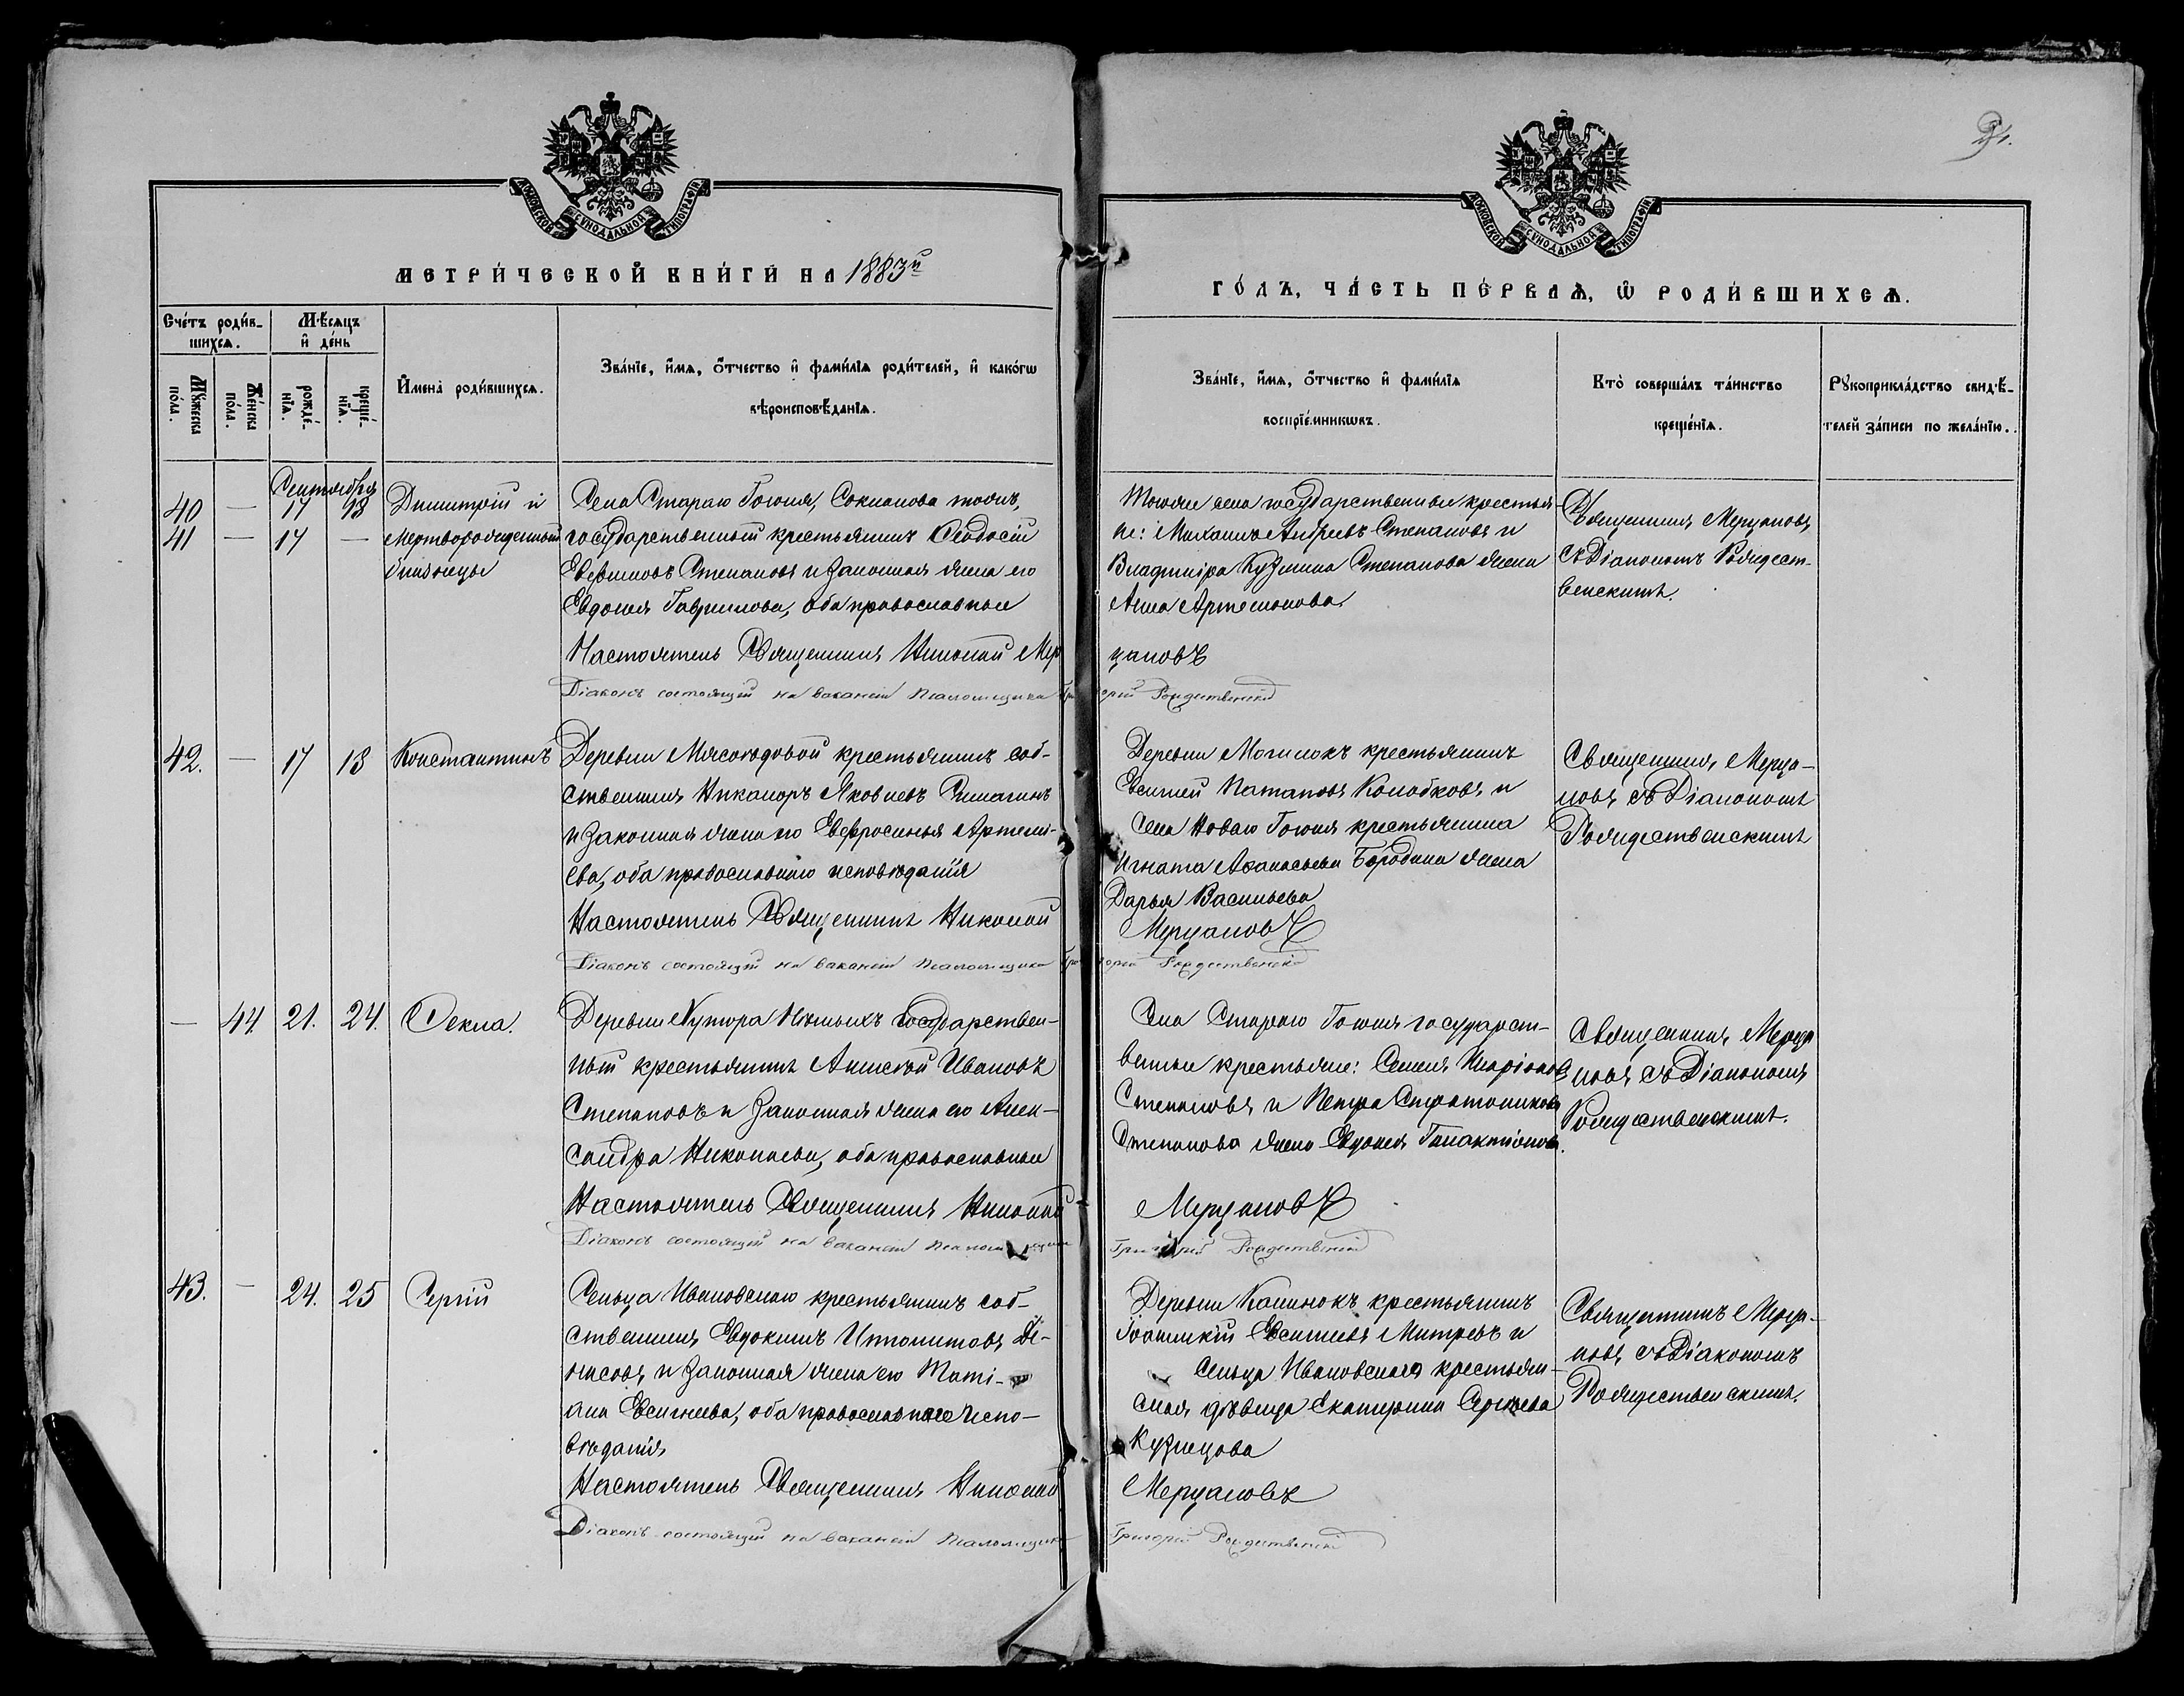 МОСКОВСКОЙ СУНОДАЛЬНОЙ ТИПОГРАФІИ
МЕТРИ́ЧЕСКОЙ КНИ́ГИ НА 1883й
Сче́тъ роди́в-
шихсѧ.
Мѣ́сѧцъ
и҆ де́нь
Мꙋ́жеска
по́ла.
Же́нска
по́ла.
рожде́-
нїѧ.
креще́-
нїѧ.
И҆мена̀ роди́вшихсѧ.
Зва́нїе, и҆́мѧ, ѻ҆́тчество и҆ фами́лїѧ роди́телей, и҆ како́гѡ
вѣроисповѣ́данїѧ.
Сентября
40 — 17 18 Димитрій и
41 — 17 — Мертворожденный
близнецы
Села Стараго Гольня, тожъ,
государственный крестьянинъ Ѳеодосій
Евфимовъ Степановъ и законная жена его
Евдокия Гаврилова, оба православные
Настоятель Священникъ Николай Мер
Діаконъ состоящій на вакансіи Псаломщика
42. — 17 18 Константинъ
Деревни Мясоедовой крестьянинъ соб-
ственникъ Никаноръ Яковлевъ
и законная жена его Евфросинья Артемі-
ева, оба православнаго исповѣданія
Настоятель Священникъ Николай
Діаконъ состоящій на вакансіи Псаломщика
— 44 21. 24. Ѳекла.
Деревни Хутора государствен-
ный крестьянинъ Алексѣй Ивановъ
Степановъ и законная жена его Алек-
сандра Николаева, оба православные
Настоятель Священникъ Николай
Діаконъ состоящій на вакансіи
43. — 24. 25 Сергій
Сельца Ивановскаго крестьянинъ соб-
ственникъ Евдокимъ Ипполитовъ Де-
нисовъ и законная жена его Таті-
ана Евсигнеева, оба православнаго испо-
вѣданія
Настоятель Священникъ Николай
Діаконъ состоящій на вакансіи Псаломщика
МОСКОВСКОЙ СУНОДАЛЬНОЙ ТИПОГРАФІИ
ГО́ДЪ, ЧА́СТЬ ПЕ́РВАѦ, Ѡ҆ РОДИ́ВШИХСѦ.
Зва́нїе, и҆́мѧ, ѻ҆́тчество и҆ фами́лїѧ
воспрїе́мникѡвъ.
Кто̀ соверша́лъ та́инство
креще́нїѧ.
Рꙋкоприкла́дство свидѣ́-
телей за́писи по жела́нїю.
Тогоже села государственные крестья
не: Михаилъ Андреевъ Степановъ и
Владиміра Кузмина Степанова жена
Анна Артемонова.
цаловъ
Рождественскій
Священникъ Мерцаловъ
съ Діакономъ Рождест-
венскимъ.
Деревни Могилокъ крестьянинъ
Евсигней Потаповъ Колобковъ и
Села Новаго Гольня крестьянина
Игната Аѳанасьева Бородина жена
Дарья Васильева
Мерцаловъ
Рождественскій
Священникъ Мерца-
ловъ съ Діакономъ
Рождественскимъ
Села Стараго Гольня государст-
венные крестьяне: Семенъ Иларіоновъ
Степановъ и Петра Стратоникова
Степанова жена Евдокия Галактіонова.
Мерцаловъ
Григорій Рождественскій
Священникъ Мерца
ловъ съ Діакономъ
Рождественскимъ.
Деревни Калинокъ крестьянинъ
Іоанникій Евсигнеевъ Митревъ и
Сельца Ивановскаго крестьян-
ская дѣвица Екатерина Сергѣева
Кузнецова
Мерцаловъ
Григорій Рождественскій
Священникъ Мерца-
ловъ съ Діакономъ
Рождественскимъ.